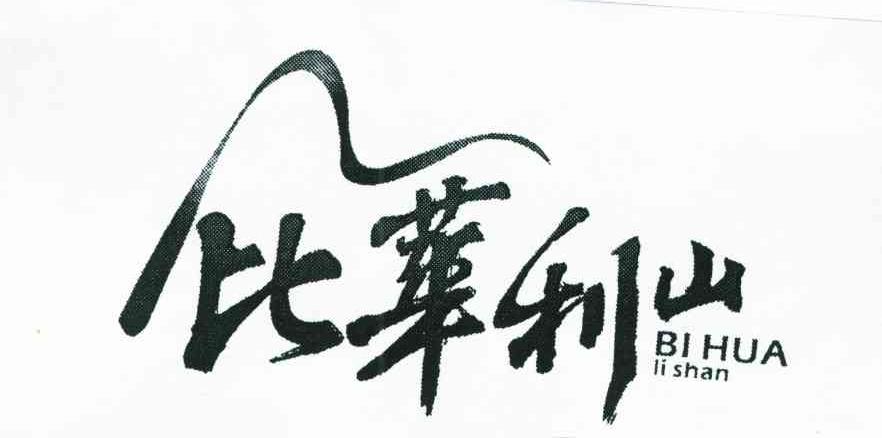 比華利山
BI HUA
li shan